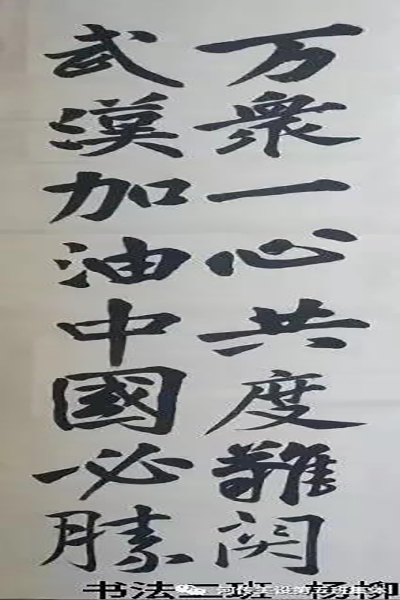 万衆一心共度難関
武漢加油中國必勝
书法二班 杨柳